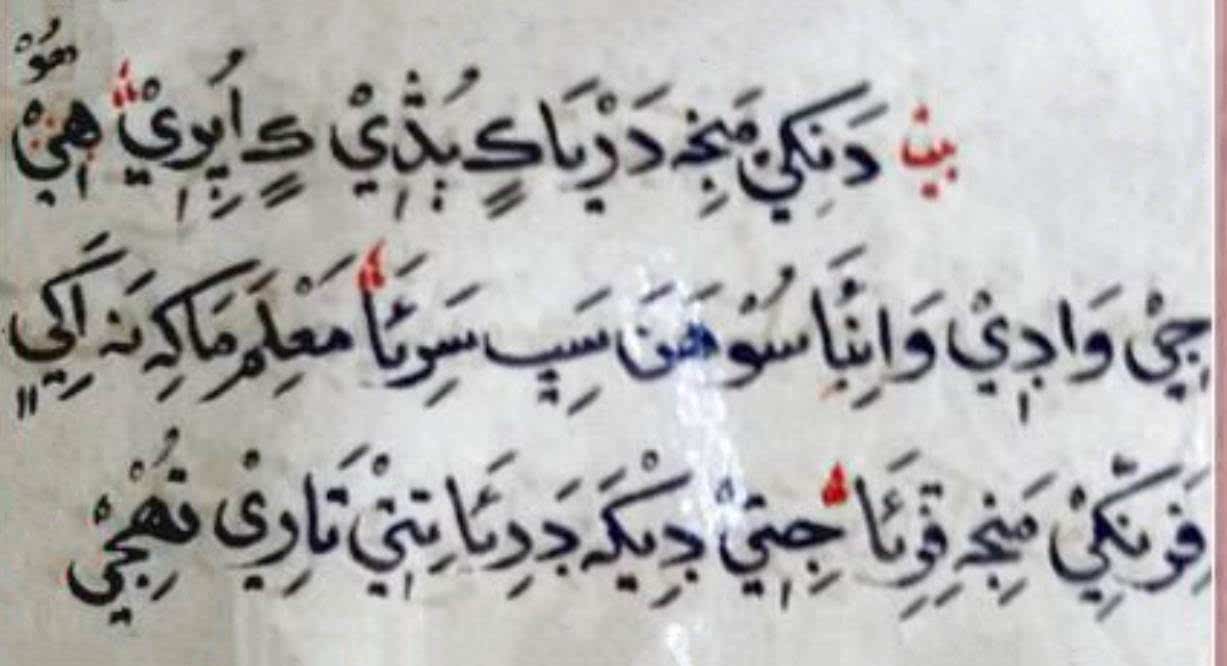 بيت دَنِكِيْ مَنِجه دَرْيَا كٍ بُڎِيْ كٍ اُپِرِيْ هُوْ
جِيْ وَادِيْ وَانِيَّا سُوْهَنَ سَڀِ سَرِيَّا مَعْلِمَ مَاكِهِ نَہ اَكِيٍ
فَرَنْكِيْ مَنِجه قِرِيَا جِتِيْ دِيْكَہ دَرِيَا تِتِيْ تَارِيْ تُهِجِيْ